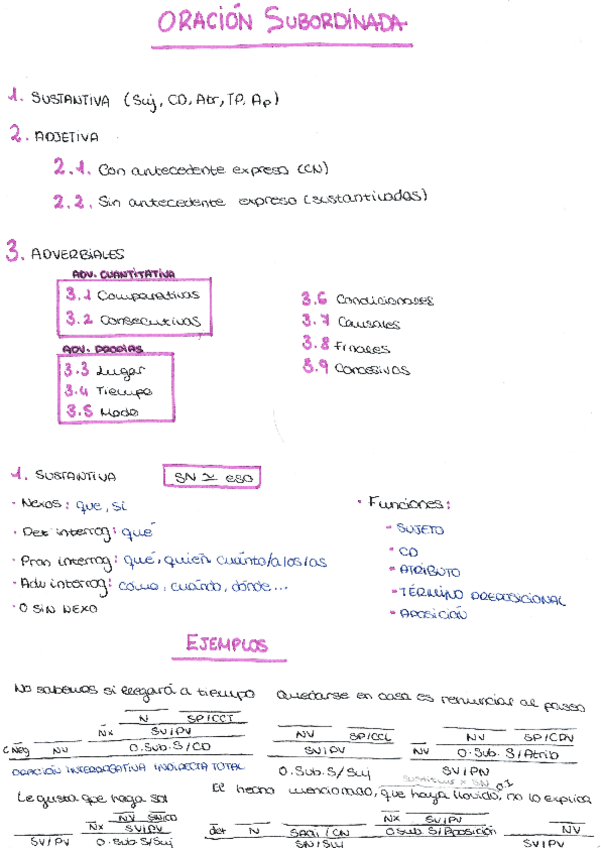 ORACIÓN SUBORDINADA
1. SUSTANTIVA (Suj, CD, Atr, TP, Ap)
2. ADJETIVA
2.1. Con antecedente expreso (CN)
2.2. Sin antecedente expreso (sustantivadas)
3. ADVERBIALES
ADV. CUANTITATIVA
3.1 Comparativas
3.2 Consecutivas
ADV. PROPIAS
3.3 Lugar
3.4 Tiempo
3.5 Modo
3.6 Condicionales
3.7 Causales
3.8 Finales
3.9 Concesivas
1. SUSTANTIVA SN ≃ eso
· Nexos: que, si
· Det interrog: qué
· Pron interrog: qué, quién cuánto/a/os/as
· Adv interrog: cómo, cuándo, dónde...
· O SIN NEXO
· Funciones:
- SUJETO
- CD
- ATRIBUTO
- TÉRMINO PREPOSICIONAL
- APOSICIÓN
EJEMPLOS
No sabemos si llegará a tiempo
N SP/CCT
Nx SV/PV
C Neg NV O.Sub.S/CD
ORACIÓN INTERROGATIVA INDIRECTA TOTAL
quedarse en casa es renunciar al paseo
NV SP/CCL NV SP/CPV
SV/PV NV O.Sub.S/Atrib
O.Sub.S/Suj SV/PN
Le gusta que haga sol
NV SN/CD
Nx SV/PV
SV/PV O.Sub S/Suj
El hecho mencionado, que haya llovido, no lo explica
Nx SV/PV
det N SAdj/CN O Sub S/Aposición NV
SN/Suj SV/PV